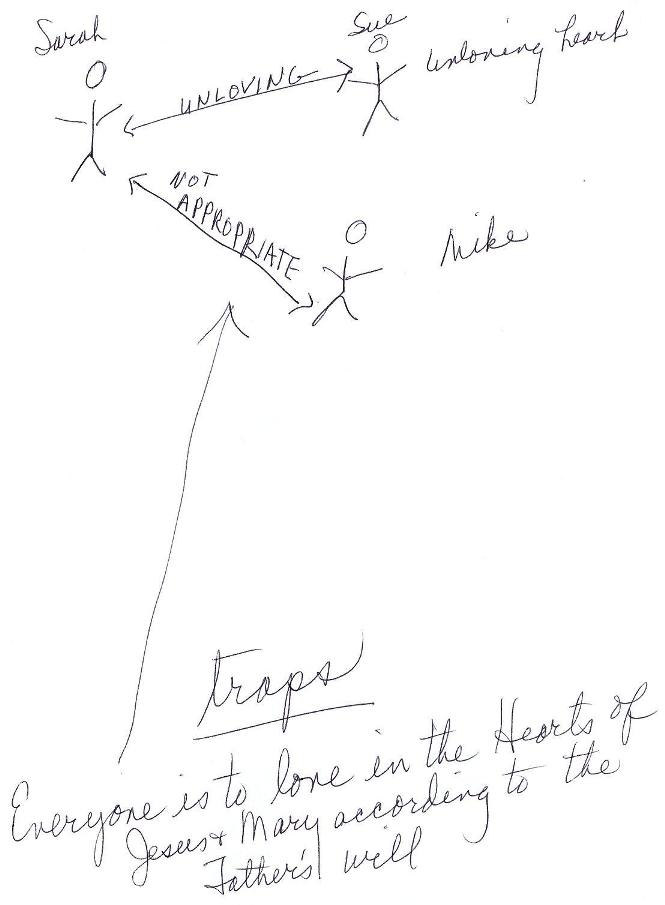 Sarah
Sue
unloving heart
UNLOVING
NOT
APPROPRIATE
Mike
traps
Everyone is to love in the Hearts of
Jesus & Mary according to the
Father's will